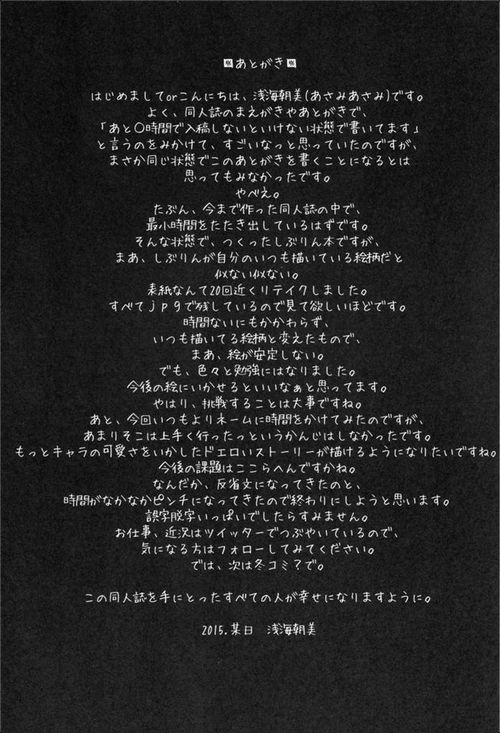 ※あとがき※
はじめましてorこんにちは、浅海朝美(あさみあさみ)です。
よく、同人誌のまえがきやあとがきで、
「あと〇時間で入稿しないといけない状態で書いてます」
と言うのをみかけて、すごいなっと思っていたのですが、
まさか同じ状態でこのあとがきを書くことになるとは
思ってもみなかったです。
やべえ。
たぶん、今まで作った同人誌の中で、
最小時間をたたき出しているはずです。
そんな状態で、つくったしぶりん本ですが、
まあ、しぶりんが自分のいつも描いている絵柄だと
似ない似ない。
表紙なんて20回近くリテイクしました。
すべてjpgで残しているので見て欲しいほどです。
時間ないにもかかわらず、
いつも描いてる絵柄と変えたもので、
まあ、絵が安定しない。
でも、色々と勉強にはなりました。
今後の絵にいかせるといいなぁと思ってます。
やはり、挑戦することは大事ですね。
あと、今回いつもよりネームに時間をかけてみたのですが、
あまりそこは上手く行ったっというかんじはしなかったです。
もっとキャラの可愛さをいかしたドエロいストーリーが描けるようになりたいですね。
今後の課題はここらへんですかね。
なんだか、反省文になってきたのと、
時間がなかなかピンチになってきたので終わりにしようと思います。
誤字脱字いっぱいでしたらすみません。
お仕事、近況はツイッターでつぶやいているので、
気になる方はフォローしてみてください。
では、次は冬コミで。
この同人誌を手にとったすべての人が幸せになりますように。
2015.某日 浅海朝美